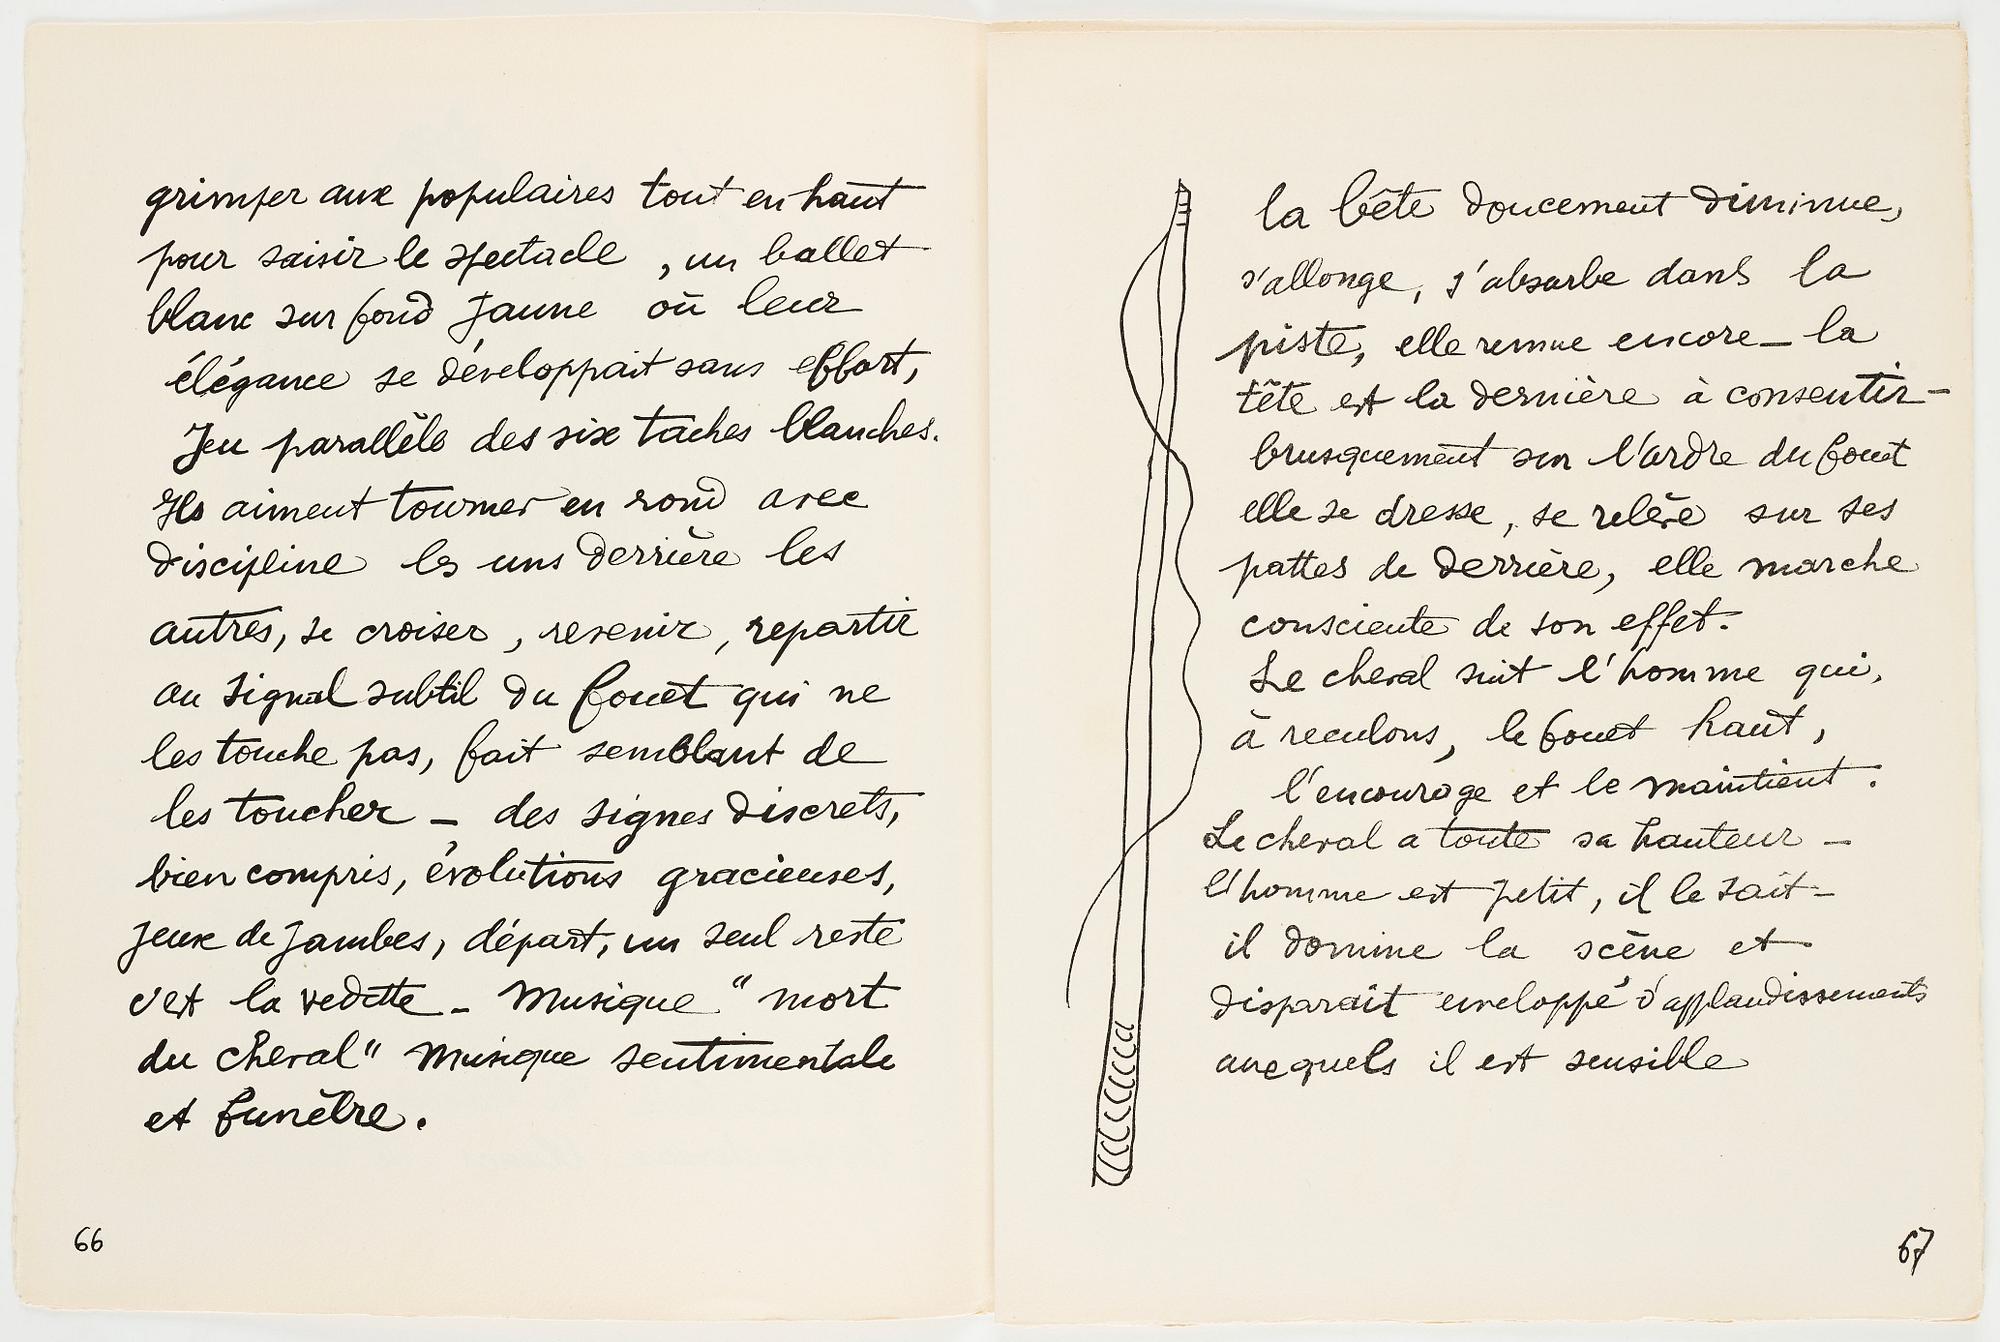 grimper aux populaires tout en haut
pour saisir le spectacle , un ballet
blanc sur fond jaune où leur
élégance se développait sans effort,
Jeu parallèle des six taches blanches.
Ils aiment tourner en rond avec
discipline les uns derrière les
autres, se croiser , revenir , repartir
au signal subtil du fouet qui ne
les touche pas, fait semblant de
les toucher _ des signes discrets,
bien compris, évolutions gracieuses,
jeux de jambes, départ, un seul reste
c'est la vedette _ Musique " mort
du cheval " Musique sentimentale
et funèbre.
66
la bête doucement diminue,
s'allonge, s'absorbe dans la
piste, elle remue encore _ la
tête est la dernière à consentir _
brusquement sur l'ordre du fouet
elle se dresse , se relève sur ses
pattes de derrière, elle marche
consciente de son effet.
Le cheval suit l'homme qui,
à reculons, le fouet haut,
l'encourage et le maintient .
Le cheval a toute sa hauteur _
l'homme est petit, il le sait _
il domine la scène et
disparaît enveloppé d'applaudissements
auxquels il est sensible
67